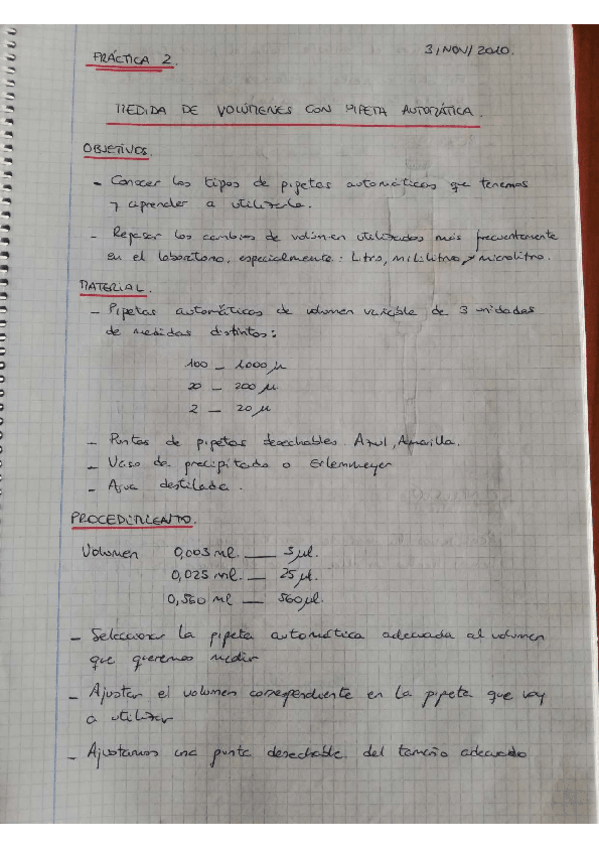 PRÁCTICA 2.
3/NOV/2010.
MEDIDA DE VOLÚMENES CON PIPETA AUTOMÁTICA.
OBJETIVOS.
- Conocer los tipos de pipetas automáticas que tenemos
y aprender a utilizarla.
- Repasar los cambios de volúmen utilizados más frecuentemente
en el laboratorio, especialmente: Litro, mililitro, y microlitro.
MATERIAL.
- Pipetas automáticas de volumen variable de 3 unidades
de medidas distintas:
100 - 1000 µ
20 - 200 µ
2 - 20 µ
- Puntas de pipetas desechables. Azul, Amarilla.
- Vaso de precipitado o Erlenmeyer
- Agua destilada.
PROCEDIMIENTO.
Volumen 0,005 ml. ___ 5 µl.
0,025 ml. ___ 25 µl.
0,560 ml ___ 560 µl.
- Seleccionar la pipeta automática adecuada al volumen
que queremos medir
- Ajustar el volumen correspondiente en la pipeta que voy
a utilizar
- Ajustamos una punta desechable. del tamaño adecuado